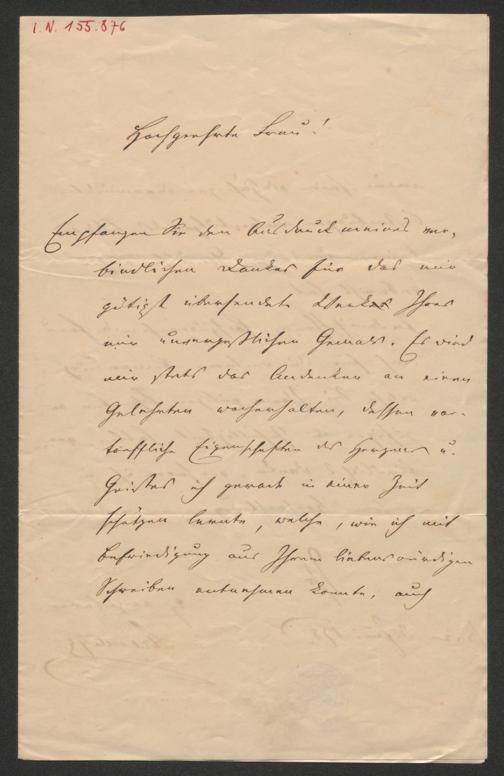 I. N. 155.876
Hochgeehrte Frau!
Empfangen Sie den Ausdruck meines ver-
bindlichen Dankes für das mir
gütigst übersendete Werk Ihres
mir unvergeßlichen Gemals. Es wird
mir stets das Andenken an einen
Gelehrten wacherhalten, dessen vor-
treffliche Eigenschaften des Herzens u.
Geistes ich gerade in einer Zeit
schätzen lernte, welche, wie ich mit
Befriedigung aus Ihrem liebenswürdigen
Schreiben entnehmen konnte, auch